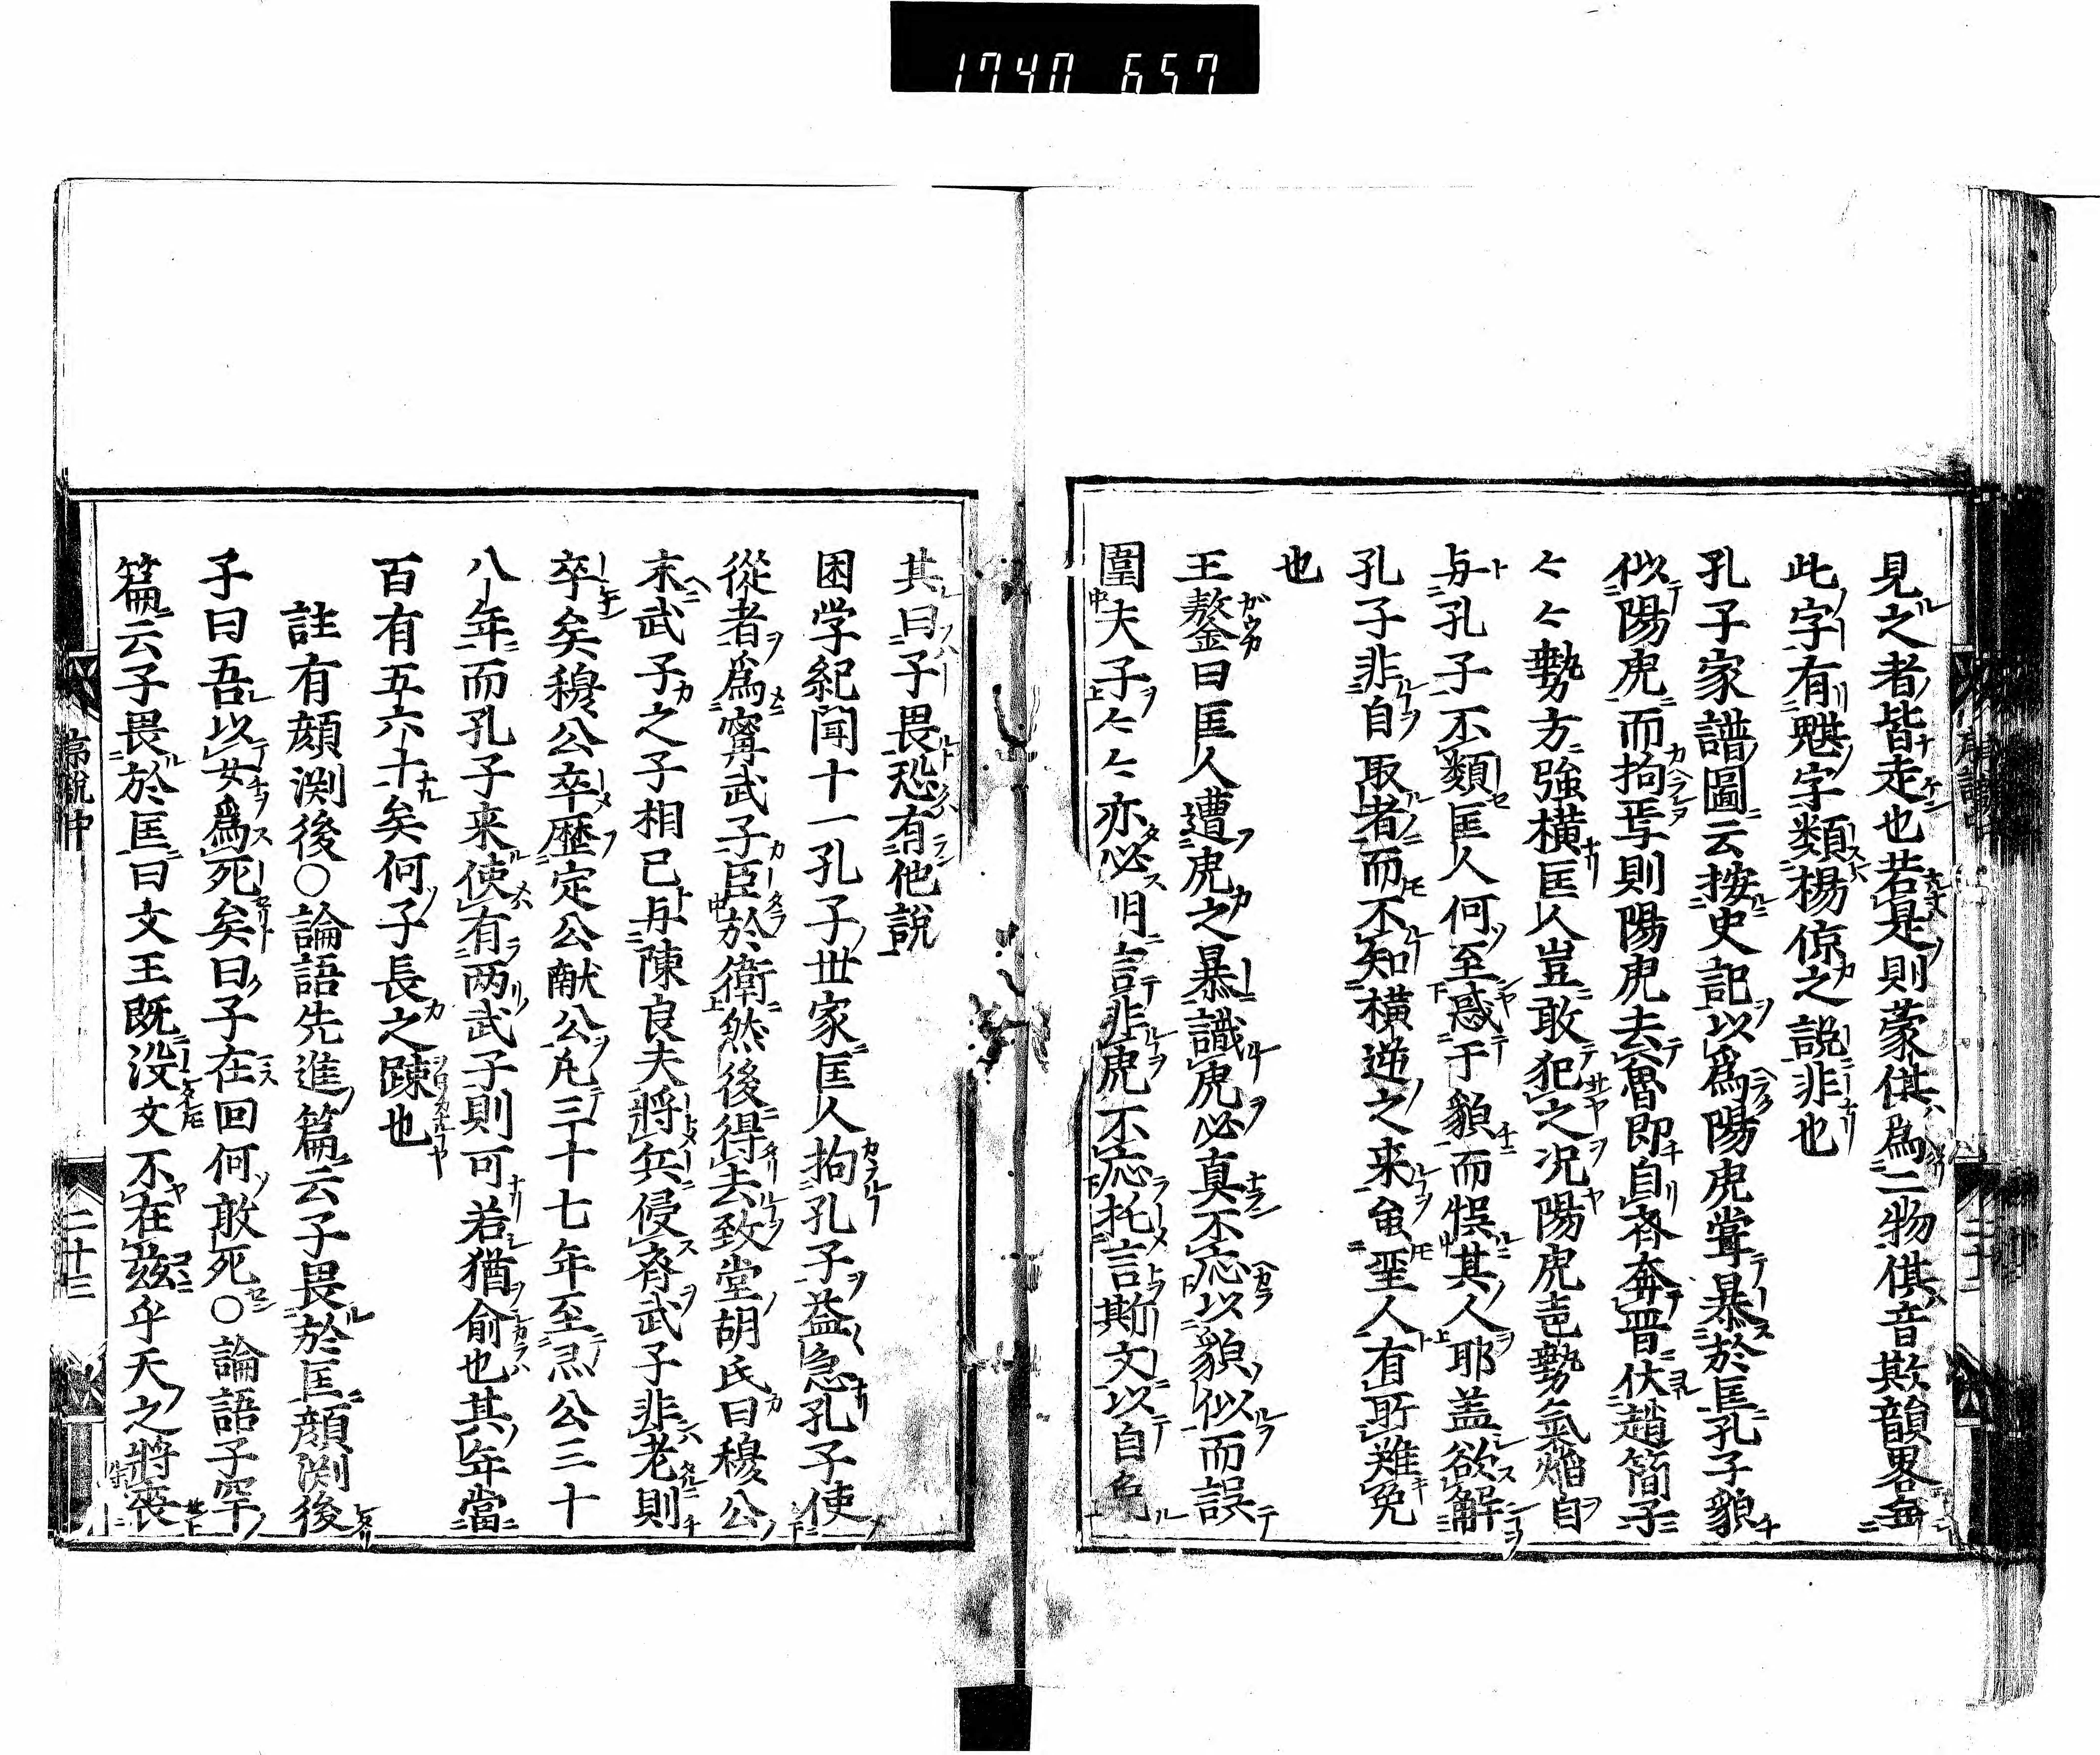 1740 657
見之者皆走也若是則蒙倛為二物倛音欺韻畧無
此字有魌字類楊倞之說非也
孔子家譜圖云按史記以為陽虎甞暴於匡孔子貌
似陽虎而拘焉則陽虎去魯即自斉奔晋伏趙簡子
々々勢方強横匡人豈敢犯之况陽虎壱勢氣熖自
与孔子不類匡人何至惑于貌而悞其人耶盖欲解
孔子非自取者而不知横逆之来虽圣人有所難免
也
王鏊曰匡人遭虎之暴識虎必真不応以貌似而誤
圍夫子々々亦必明言非虎不応托言斯文以自免
其曰子畏恐有他說
困学紀聞十一孔子世家匡人拘孔子益急孔子使
從者爲寗武子臣於衛然後得去致堂胡氏曰穆公
末武子之子相已与陳良夫將兵侵斉武子非老則
卒矣穆公卒歴定公献公凡三十七年至灵公三十
八年而孔子来使有两武子則可若猶俞也其年當
百有五六十矣何子長之踈也
註有顔渕後○論語先進篇云子畏於匡顔渕後
子曰吾以女爲死矣曰子在回何敢死○論語子罕
篇云子畏於匡曰文王既没文不在玆乎天之將喪
序説中
二十三